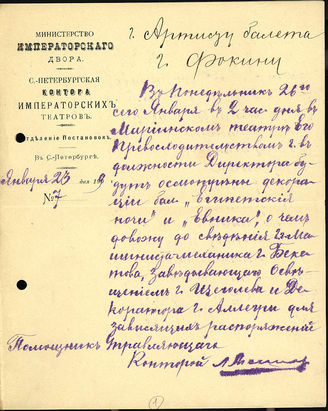 МИНИСТЕРСТВО
ИМПЕРАТОРСКАГО
ДВОРА.
С.-ПЕТЕРБУРГСКАЯ
КОНТОРА
ИМПЕРАТОРСКИХЪ
ТЕАТРОВЪ.
Отдѣленіе Постановокъ
Въ С.-Петербургѣ.
Января 23 дня 19
№ 7
г. Артисту балета
г. Фокину
Въ Понедѣльникъ 26го
сего Января въ 2 час. дня въ
Маріинскомъ театрѣ Его
Превосходительствомъ г. въ
должности Директора бу-
дутъ осмотрѣны декора-
ціи бал. „Египетскія
ночи" и „Евника", о чемъ
довожу до свѣдѣнія г. Ма-
шиниста-механика г. Бека-
това, Завѣдывающаго Освѣ-
щеніемъ г. Щеголева и Де-
коратора г. Аллегри для
зависящихъ распоряженій
Помощникъ Управляющаго
Конторой